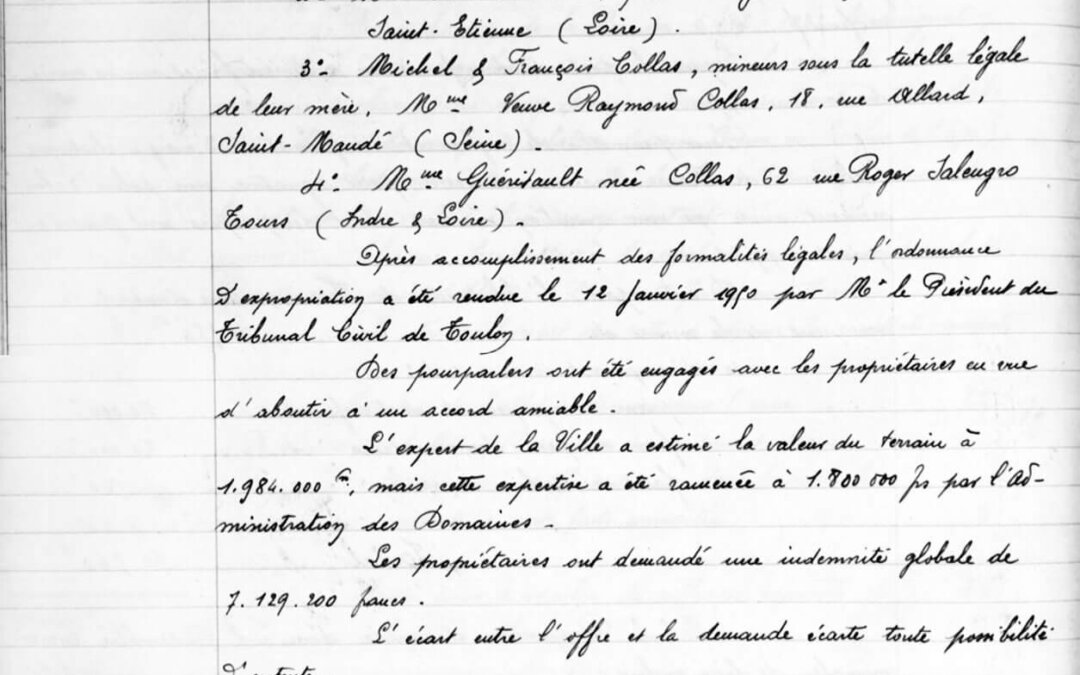 Saint-Etienne (Loire).
3°- Michel & François Collas, mineurs sous la tutelle légale
de leur mère, Mme Veuve Raymond Collas, 18, rue Allard,
Saint-Mandé (Seine).-
4°- Mme Guéritault née Collas, 62 rue Roger Salengro
Tours (Indre & Loire).-
Après accomplissement des formalités légales, l'ordonnance
d'expropriation a été rendue le 12 Janvier 1950 par Mr le Président du
Tribunal Civil de Toulon.
Des pourparlers ont été engagés avec les propriétaires en vue
d'aboutir à un accord amiable.
L'expert de la Ville a estimé la valeur du terrain à
1.984.000 frs, mais cette expertise a été ramenée à 1.800 000 frs par l'Ad-
ministration des Domaines-
Les propriétaires ont demandé une indemnité globale de
7.129.200 francs.
L'écart entre l'offre et la demande écarte toute possibilité